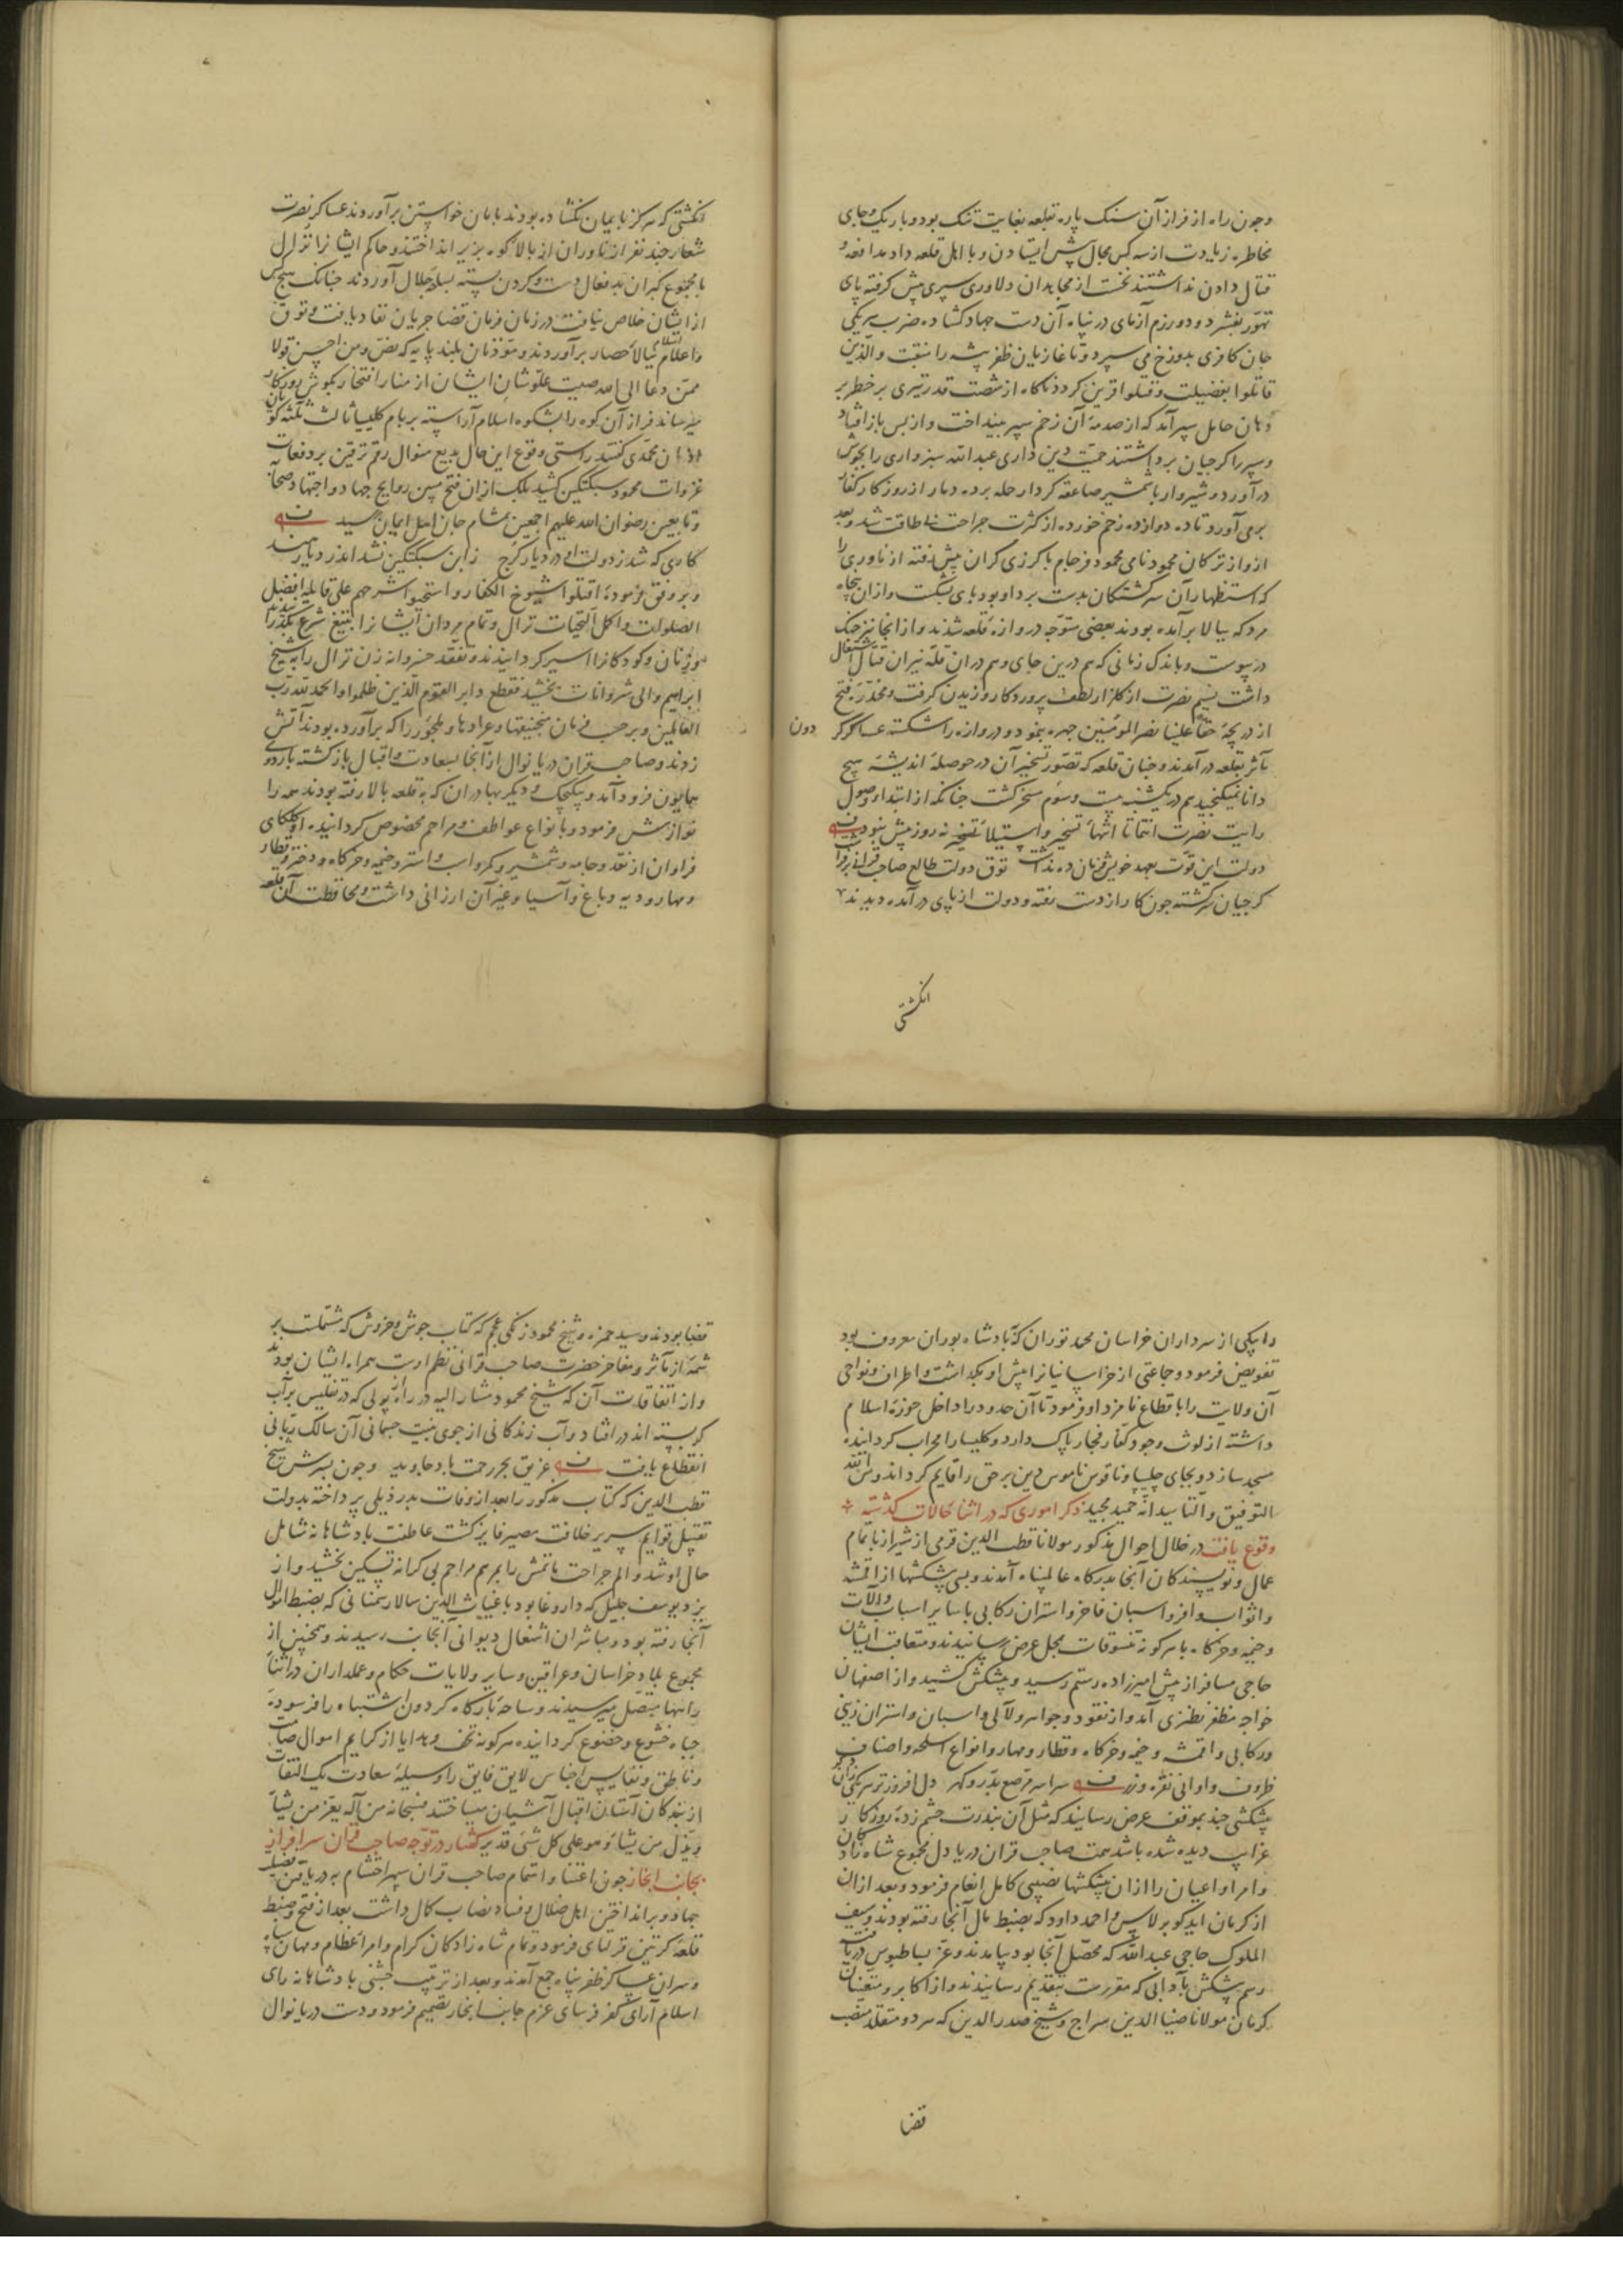 وچون راه از فراز آن سنک پاره بقلعه بغایت تنک بود و باریک و جای
مخاطره زیادت از سه کس مجال پیش ایستادن و با اهل قلعه داد مدافعه و
قتال دادن نداشتند نخست از مجاهدان دلاوری سپری پیش کرفته پای
تهور بفشرد و دو رزم آزمای در پناه آن دست جهاد کشاده بضرب هر یکی
جان کافری بدوزخ می سپرد و تا غازیان ظفر پیشه را منقبت والذین
قاتلوا بفضیلت وقتلوا قرین کردد ناکاه از شصت قدر تیری بر خطر بر
دهان حامل سپر آمد که از صدمهٔ آن زخم سپر بینداخت و از پس باز افتاد
و سپر را کرجیان برداشتند حمیت دین داری عبدالله سبزواری را بجوش
در آورد و شیروار با شمشیر صاعقه کردار حمله برده دمار از روزکار کفار
برمی آورد تا ده دوازده زخم خورده از کثرت جراحت بی طاقت شد و بعد
ازو از ترکان محمود نامی محمود فرجام با کرزی کران پیش رفته از ناوری را
که استظهار آن سرکشتکان بدست برد او بود پای بشکست و از آن پنجاه
مرد که ببالا برآمده بودند بعضی متوجه دروازهٔ قلعه شدند و از آنجا نیز جنک
در پیوست و باندک زمانی که هم درین جای و هم در آن قله نیران قتال اشتعال
داشت نسیم نصرت از کلزار لطف پروردکار وزیدن کرفت و مخدرهٔ فتح
از دریچهٔ حقا علینا نصر المؤمنین چهره بنمود و دروازه را شکسته عساکر کردون
مآثر بقلعه در آمدند و چنان قلعه که تصور تسخیر آن در حوصلهٔ اندیشهٔ هیچ
دانا نمیکنجید هم در یکشنبه بیست و سوم مسخر کشت چنانکه از ابتداء وصول
رایت نصرت انتما تا انتهاء تسخیر و استیلا نه روز بیش نبود بیت
دولت این قوت بعهد خویش فرمان ده نداشت توق دولت طالع صاحب قرانی برفراشت
کرجیان سرکشته چون کار از دست رفته و دولت از پای در آمده دیدند
انکشتی
انکشتی که هرکز بایمان نکشاده بودند بامان خواستن برآوردند عساکر نصرت
شعار چند نفر از ناوران از بالاء کوه بزیر انداختند و حاکم ایشان نزال
با مجموع کبران بدفعال دست و کردن بسته بسدهٔ جلال آوردند چنانک هیچکس
از ایشان خلاص نیافت در زمان فرمان قضا جریان نفاد یافت و توق
و اعلام اسلام ببالاء حصار برآوردند و مؤذنان بلند پایه که نص ومن احسن قولا
ممن دعا الی الله صیت علو شان ایشان از منار افتخار بکوش روزکار
میرساند فراز آن کوه را بشکوه اسلام آراسته بر بام کلیسیا ثالث ثلثه کویان
اذان محمدی کفتند راستی وقوع این حال بدیع منوال رقم ترقین بر دفعات
غزوات محمود سبکتکین کشید بلک از آن فتح مبین روایح جهاد و اجتهاد صحابه
و تابعین رضوان الله علیهم اجمعین بمشام جان اهل ایمان رسید بیت
کاری که شد ز دولت او در دیار کرج ز ابن سبکتکین نشد اندر دیار هند
و بر وفق فرمودهٔ اقتلوا شیوخ الکفار واستحیوا شرخهم علی قایلها افضل
الصلوات واکمل التحیات نزال و تمام مردان ایشانرا بتیغ شرع بکذرانیدند
و زنان و کودکانرا اسیر کردانیدند و تفقد خسروانه زن نزال را به شیخ
ابراهیم والی شروانات بخشید فقطع دابر القوم الذین ظلموا والحمد لله رب
العالمین و بر حسب فرمان منجنیقها و عرادها و ملجور را که برآورده بودند آتش
زدند و صاحب قران دریا نوال از آنجا بسعادت و اقبال بازکشته باردوی
همایون فرود آمد و بیکیجک و دیکر بهادران که به قلعه بالا رفته بودند همه را
نوازش فرمود و بانواع عواطف و مراحم مخصوص کردانیده اولکای
فراوان از نقد و جامه و شمشیر و کمر و اسب و استر و خیمه و خرکاه و دختر و قطار
و مهار و دیه و باغ و آسیا و غیر آن ارزانی داشت و محافظت آن قلعه
را بیکی از سرداران خراسان محمد توران که بادشاه بوران معروف بود
تفویض فرمود و جماعتی از خراسانیانرا پیش او بکذاشت و اطراف و نواحی
آن ولایت را باقطاع نامزد او فرمود تا آن حدود را داخل حوزهٔ اسلام
داشته از لوث وجود کفار فجار پاک دارد و کلیسیا را محراب کردانیده
مسجد سازد و بجای چلیپا و ناقوس ناموس دین بر حق را قایم کرداند ومن الله
التوفیق والتایید انه حمید مجید ذکر اموری که در اثناء حالات کذشته
وقوع یافت در خلال احوال مذکور مولانا قطب الدین قرمی از شیراز با تمام
عمال و نویسندکان آنجا بدرکاه عالم پناه آمدند و بسی پیشکشها از اقمشه
و اثواب وافر و اسبان فاخر و استران رکابی با سایر اسباب و آلات
و خیمه و خرکاه با هر کونه تنسوقات بمحل عرض رسانیدند و متعاقب ایشان
حاجی مسافر از پیش امیرزاده رستم رسید و پیشکش کشید و از اصفهان
خواجه مظفر نطنزی آمد و از نقود و جواهر و لآلی و اسبان و استران زینی
و رکابی و اقمشه و خیمه و خرکاه و قطار و مهار و انواع اسلحه و اصناف
ظروف و اوانی نقره و زر بیت سراسر مرصع بدر و کهر دل افروزتر هر یکی زان دکر
پیشکشی چند بموقف عرض رسانید که مثل آن بندرت چشم زدهٔ روزکار
غرایب دیده شده باشد همت صاحب قران دریا دل مجموع شاه زادکان
و امرا و اعیان را از آن پیشکشها نصیبی کامل انعام فرمود و بعد از آن
از کرمان ایدکو برلاس و احمد داود که بضبط مال آنجا رفته بودند و سیف
الملوک حاجی عبدالله که محصل آنجا بود بیامدند و عز بساط بوس دریافته
رسم پیشکش بآدابی که مقررست بتقدیم رسانیدند و از اکابر و متعینان
کرمان مولانا ضیا الدین سراج و شیخ صدر الدین که هر دو متقلد منصب
قضا
قضا بودند و سید حمزه و شیخ محمود زنکی عجم که کتاب جوش و خروش که مشتملست بر
شمهٔ از مآثر و مفاخر حضرت صاحب قرانی نظم اوست همراه ایشان بودند
و از اتفاقات آن که شیخ محمود مشار الیه در راه از پولی که در تفلیس بر آب
کر بسته اند در افتاد و آب زندکانی از جوی بنیت جسمانی آن سالک ربانی
انقطاع یافت بیت غریق بحر رحمت باد جاوید و چون پسرش شیخ
قطب الدین که کتاب مذکور را بعد از وفات پدر ذیلی پرداخته بدولت
تقبیل قوایم سریر خلافت مصیر فایز کشت عاطفت بادشاهانه شامل
حال او شد و الم جراحت ماتمش را بمرهم مراحم بی کرانه تسکین بخشید و از
یزد یوسف جلیل که داروغا بود با غیاث الدین سالار سمنانی که بضبط اموال
آنجا رفته بود و مباشران اشغال دیوانی آنجا برسیدند و همچنین از
مجموع بلاد خراسان و عراقین و سایر ولایات حکام و عملداران در اثناء
راهها متصل میرسیدند و ساحهٔ بارکاه کردون اشتباه را فرسودهٔ
جباه خشوع و خضوع کردانیده هر کونه تحف و هدایا از کرایم اموال صامت
و ناطق و نفایس اجناس لایق فایق را وسیلهٔ سعادت یک التفات
از بندکان آستان اقبال آشیان میساختند فسبحانه من آله یعز من یشاء
ویذل من یشاء وهو علی کل شئ قدیر کفتار در توجه صاحب قران سرافراز
بجانب ابخاز چون اعتنا و اهتمام صاحب قران سپهر احتشام به دریافتن فضیلت
جهاد و برانداختن اهل ضلال و فساد نصاب کمال داشت بعد از فتح و ضبط
قلعهٔ کرتین قرلتای فرمود و تمام شاه زادکان کرام و امراء عظام و مهان سپاه
و سران عساکر ظفر پناه جمع آمدند و بعد از ترتیب جشنی بادشاهانه رای
اسلام آرای کفر فرسای عزم جانب ابخاز تصمیم فرمود و دست دریا نوال